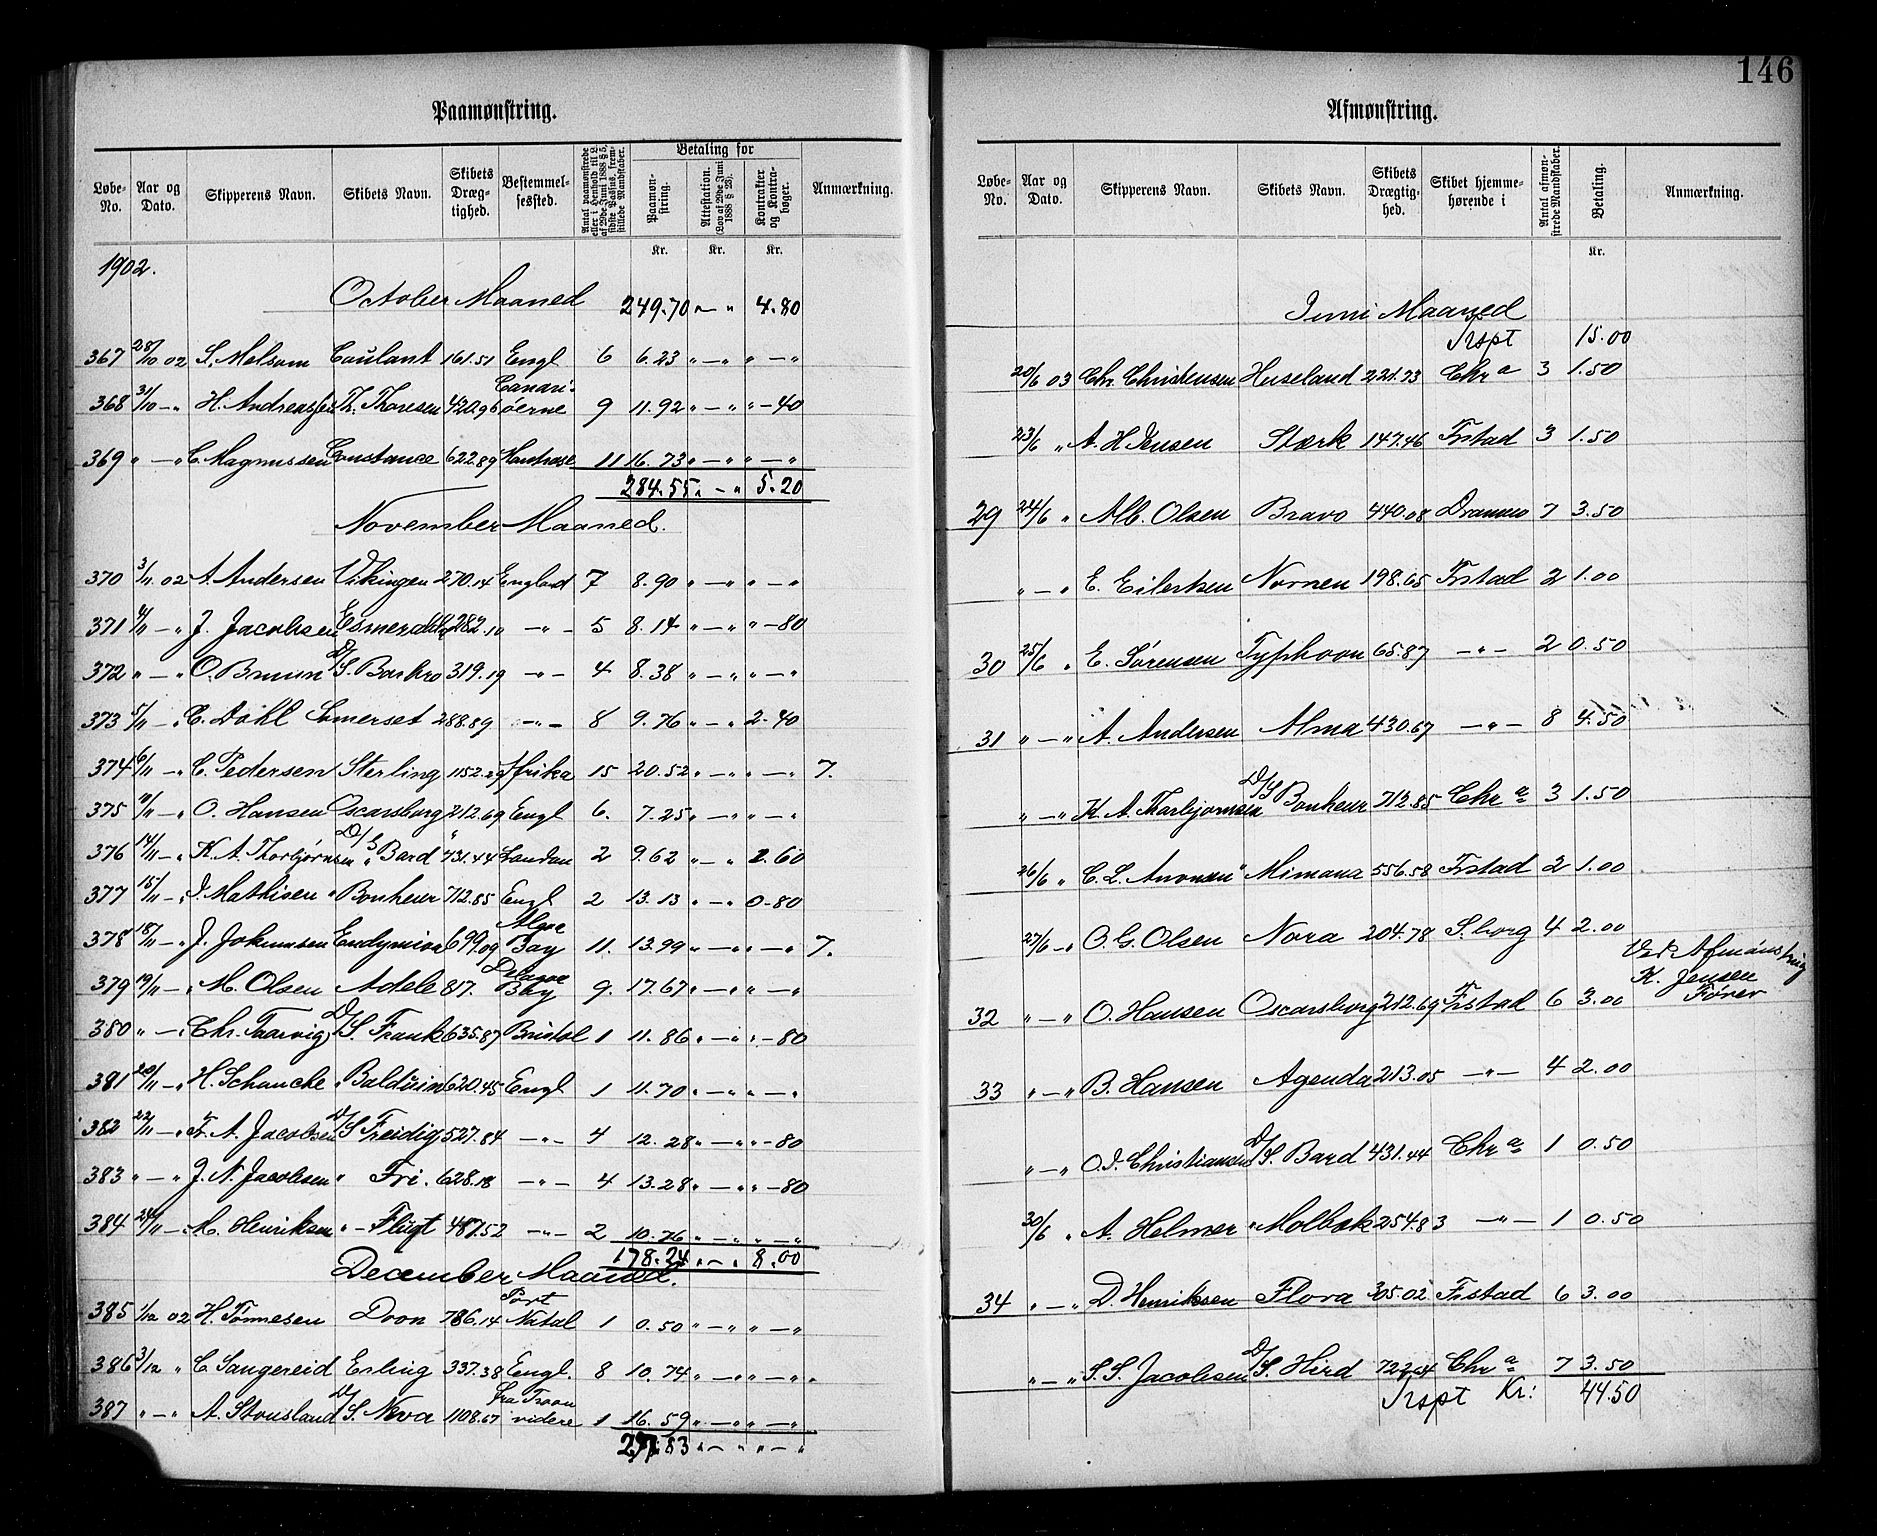 146
Paamønstring.
Løbe-No. Aar og Dato. Skipperens Navn. Skibets Navn. Skibets Dræg-tighed. Bestemmel-sessted. Antal paamønstrede eller i Henhold til L. af 29de Juni 1888 § 5, sidste Passus, frem-stillede Mandskaber. Betaling for Paamøn-string. Attestation. (Lov af 29de Juni 1888 § 28). Kontrakter og Kontra-bøger. Anmærkning.
Kr. Kr. Kr.
1902.
October Maaned 249.70 " — " 4.80
367 28/10 02 S. Melsom Coulant 161.51 Engl 6 6.23 " — " " — "
368 31/10 — " H. Andreassen Th. Thoresen 420.96 Canari-øerne 9 11.92 " — " " — 40
369 " — " C. Magnussen Constance 622.89 Montrose 11 16.73 " — " " — "
284.55 " — " 5.20
November Maaned.
370 3/11 02 A. Andersen Vikingen 270.14 England 7 8.90 " — " " — "
371 4/11 — " J. Jacobsen Esmeralda 282.10 — " — 5 8.14 " — " " — 80
372 " — " O. Bruun D/S. Barbro 319.19 — " — 4 8.38 " — " " — "
373 5/11 — " C. Dahl Somerset 288.89 — " — 8 9.76 " — " 2.40
374 6/11 — " C. Pedersen Sterling 1152.29 Afrika 15 20.52 " — " " — " 7.
375 11/11 — " O. Hansen Oscarsborg 212.69 Engl 6. 7.25 " — " " — "
376 14/11 — " K. A. Thorbjørnsen D/S " Bard " 731.44 London 2 9.62 " — " 1.60
377 15/11 — " J. Mathisen " Bonheur 712.85 Engl 2 13.13 " — " 0.80
378 18/11 — " J. Johannsen Endymion 699.09 Algoa Bay 11. 13.99 " — " " — " 7.
379 19/11 — " M. Olsen Adele 817. Delagoa Bay 9. 17.67 " — " " — "
380 " — " Chr. Taarvig D/S. Frank 635.87 Bristol 1 11.86 " — " " — 80
381 20/11 — " H. Schanche " Baldwin 620.45 Engl 1 11.70 " — " " — "
382 22/11 — " Fr. A. Jacobsen D/S Freidig 527.84 — " — 4 12.28 " — " " — 80
383 " — " J. N. Jacobsen " Fri. 628.18 — " — 4 13.28 " — " " — 80
384 24/11 — " M. Henriksen " — Flügt 487.52 — " — 2 10.76 " — " " — "
178.24 " — " 8.00
December Maaned.
385 1/12 02 H. Tønnesen Doon 786.14 Port Natal 1 0.50 " — " " — "
386 3/12 " C. Sangereid Erling 337.38 Engl. 8 10.74 " — " " — "
387 " — " A. Stousland D/S. Neva 1108.67 fra Troon videre 1 16.59 " — " " — "
83 " — " " — "
Afmønstring.
Løbe-No. Aar og Dato. Skipperens Navn. Skibets Navn. Skibets Drægtig-hed. Skibet hjemme-hørende i Antal afmøn-strede Mandskaber. Betaling. Anmærkning.
Kr.
Juni Maaned
Trspt 15.00
20/6 03 Chr. Christensen Huseland 221.73 Chra 3 1.50
23/6 " A. H. Jensen Stærk 147.46 Frstad 3 1.50
29 24/6 " Alb. Olsen Bravo 440.08 Drammen 7 3.50
" — " E. Eilertsen Nornen 198.65 Frstad 2 1.00
30 25/6 " E. Sørensen Typhoon 65.87 — " — 2 0.50
31 " — " A. Andersen Alma 430.67 — " — 8 4.50
" — " K. A. Thorbjørnsen D/S Bonheur 712.85 Chra 3 1.50
26/6 " C. L. Aronsen " Mimona 556.58 Frstad 2 1.00
27/6 — " O. G. Olsen Nora 204.78 S.borg 4 2.00
32 " — " O. Hansen Oscarsborg 212.69 Frstad 6 3.00 Ved Afmønstring K. Jensen Fører
33 " — " B. Hansen Agenda 213.05 — " — 4 2.00
" — " O. J. Christiansen D/S. Bard 431.44 Chra 1 0.50
30/6 " A. Helmer " Molbæk 254.83 — " — 1 0.50
34 " — " D. Henriksen Flora 305.02 Frstad 6 3.00
" — " S. S. Jacobsen D/S. Hird 722.64 Chra 7 3.50
Trspt Kr: 44.50